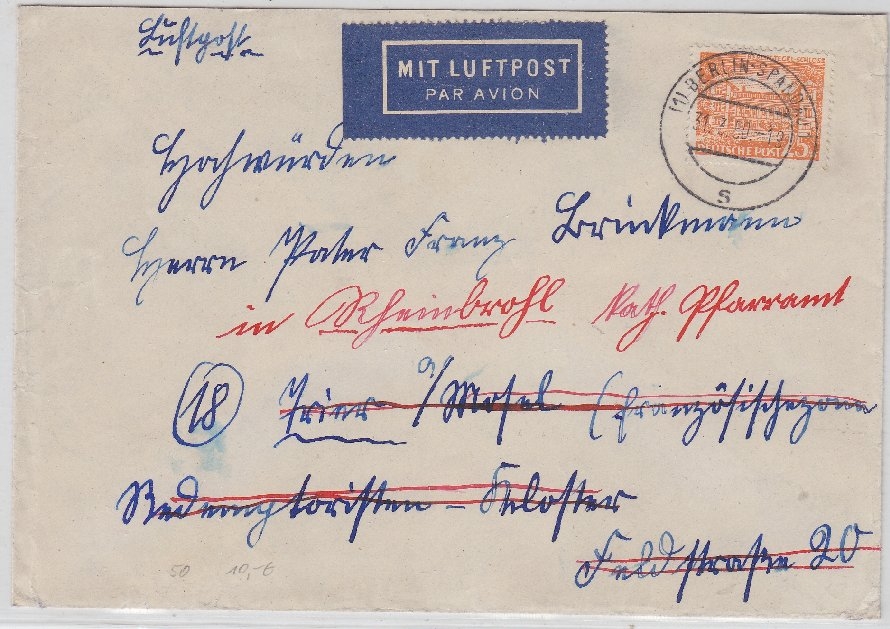 Luftpost
MIT LUFTPOST
PAR AVION
(1) BERLIN-SPANDAU
50-18
DEUTSCHE POST
25
S
Hochwürden
Herrn Pater Franz Brinkmann
in Rheinbrohl Kath. Pfarramt
(18) Trier a/Mosel (Französischezone
Redemptoristen - Kloster
Feldstraße 20
50 10,-€